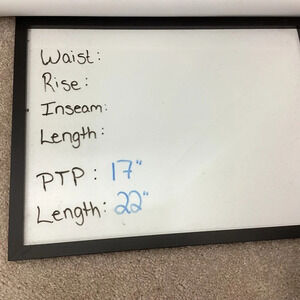 Waist:
Rise:
Inseam:
Length:
PTP: 17"
Length: 22"